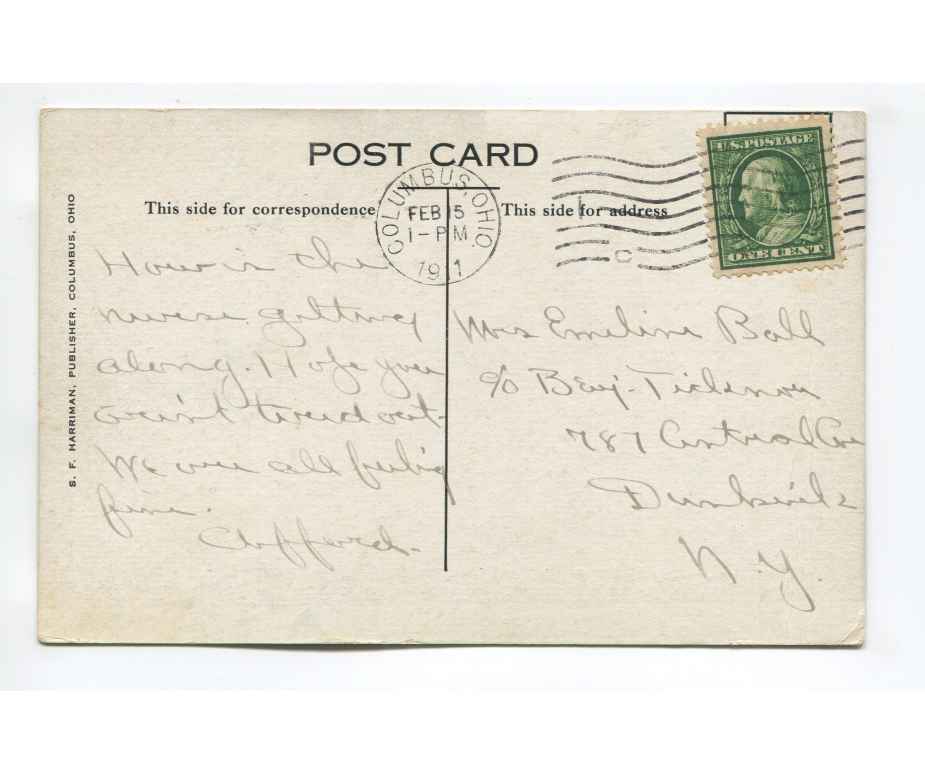 POST CARD
This side for correspondence
This side for address
S. F. HARRIMAN, PUBLISHER, COLUMBUS, OHIO
COLUMBUS, OHIO.
FEB 15
1-PM
1911
C
U.S. POSTAGE
ONE CENT
How is the
nurse getting
along. Hope you
ain't tired out-
We are all feel'g
fine.
Clifford-
Mrs Emeline Ball
c/o Benj-
787 Central Ave
Dunkirk
N.Y.